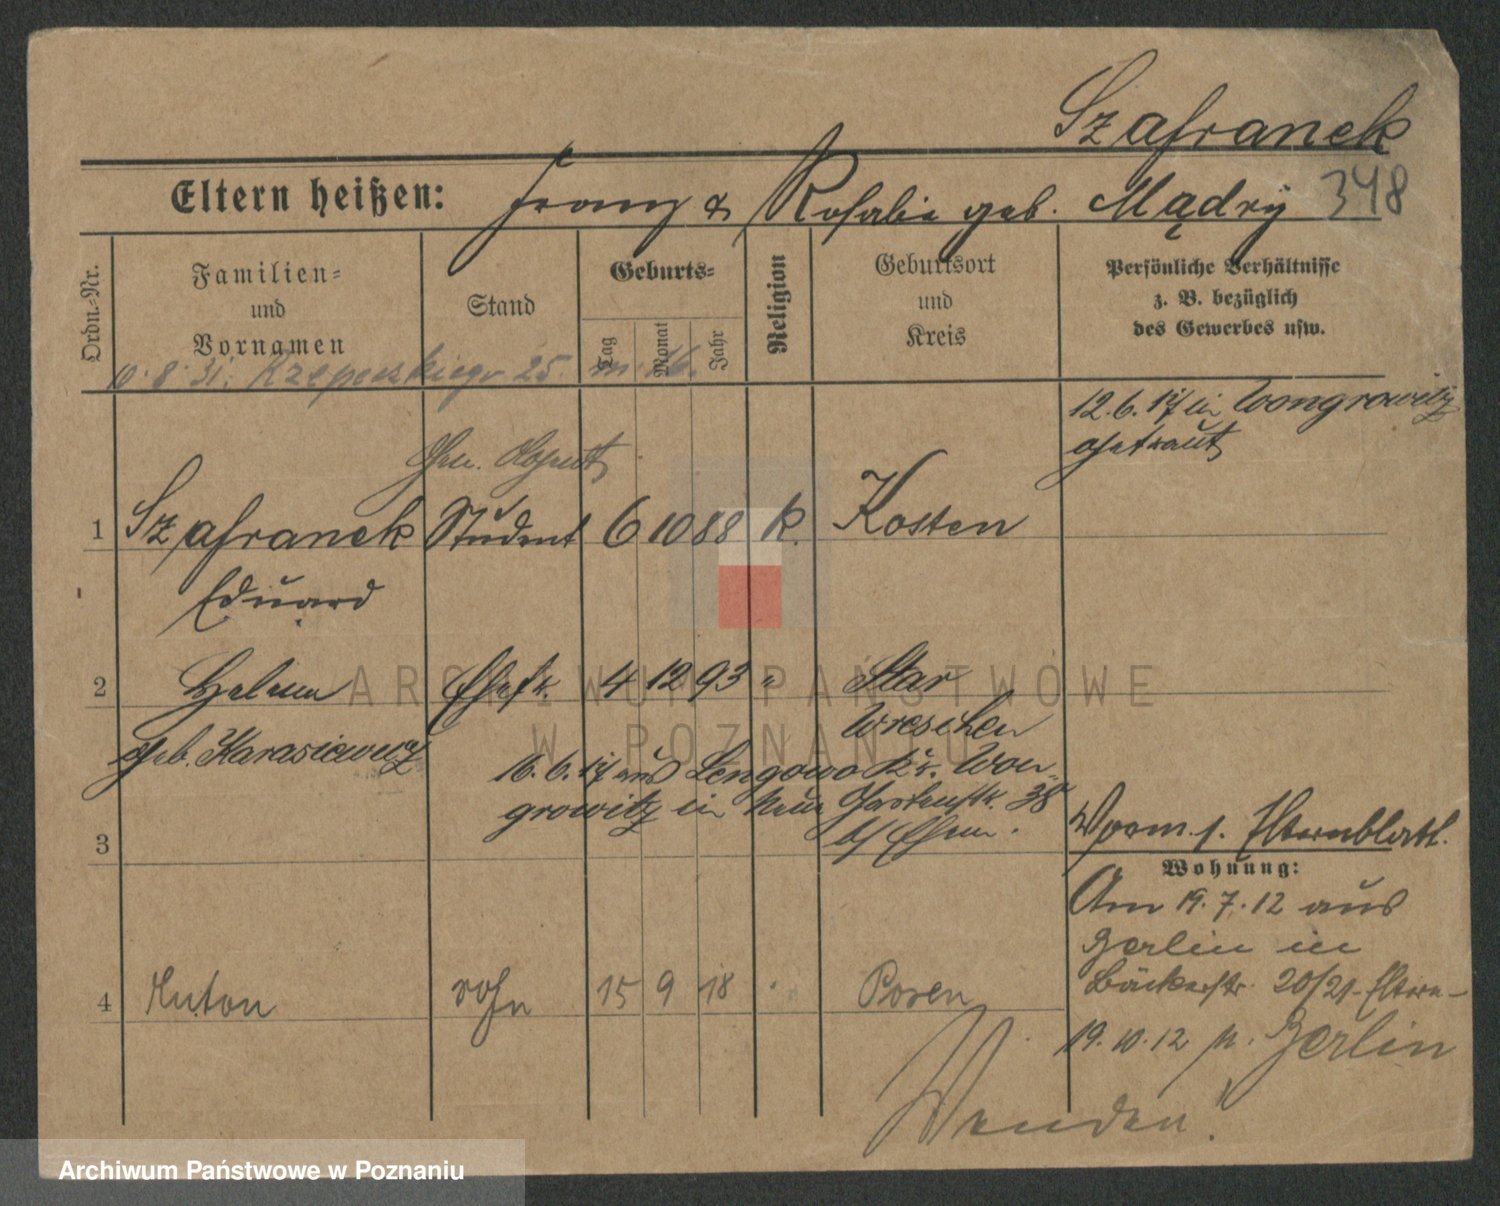 Szafranek
Eltern heißen: Franz & Rosalie geb. Mądry 348
Ordn.-Nr.
Familien-
und
Vornamen
Stand
Geburts-
Tag
Monat
Jahr
Religion
Geburtsort
und
Kreis
Persönliche Verhältnisse
z. B. bezüglich
des Gewerbes usw.
10.8.31. 25. m. 16.
12.6.17 in Wongrowitz
getraut
1 Szafranek Student 6 10 88 k. Kosten
Eduard
2 Helene Ehefr. 4 12 93 " Star
Wreschen
geb. Karasiewicz
16.6.17 aus Lengowo Kr. Won-
growitz in Neue Gartenstr. 38
3
b/ Ehem.
Vorm. s. Elternblatt.
Wohnung:
Am 19.7.12 aus
Berlin in
Bäckerstr. 20/21 Eltern
19.10.12 n. Berlin
4 Anton Sohn 15 9 18 Posen
Wenden!
ARCHIWUM PAŃSTWOWE
W POZNANIU
Archiwum Państwowe w Poznaniu